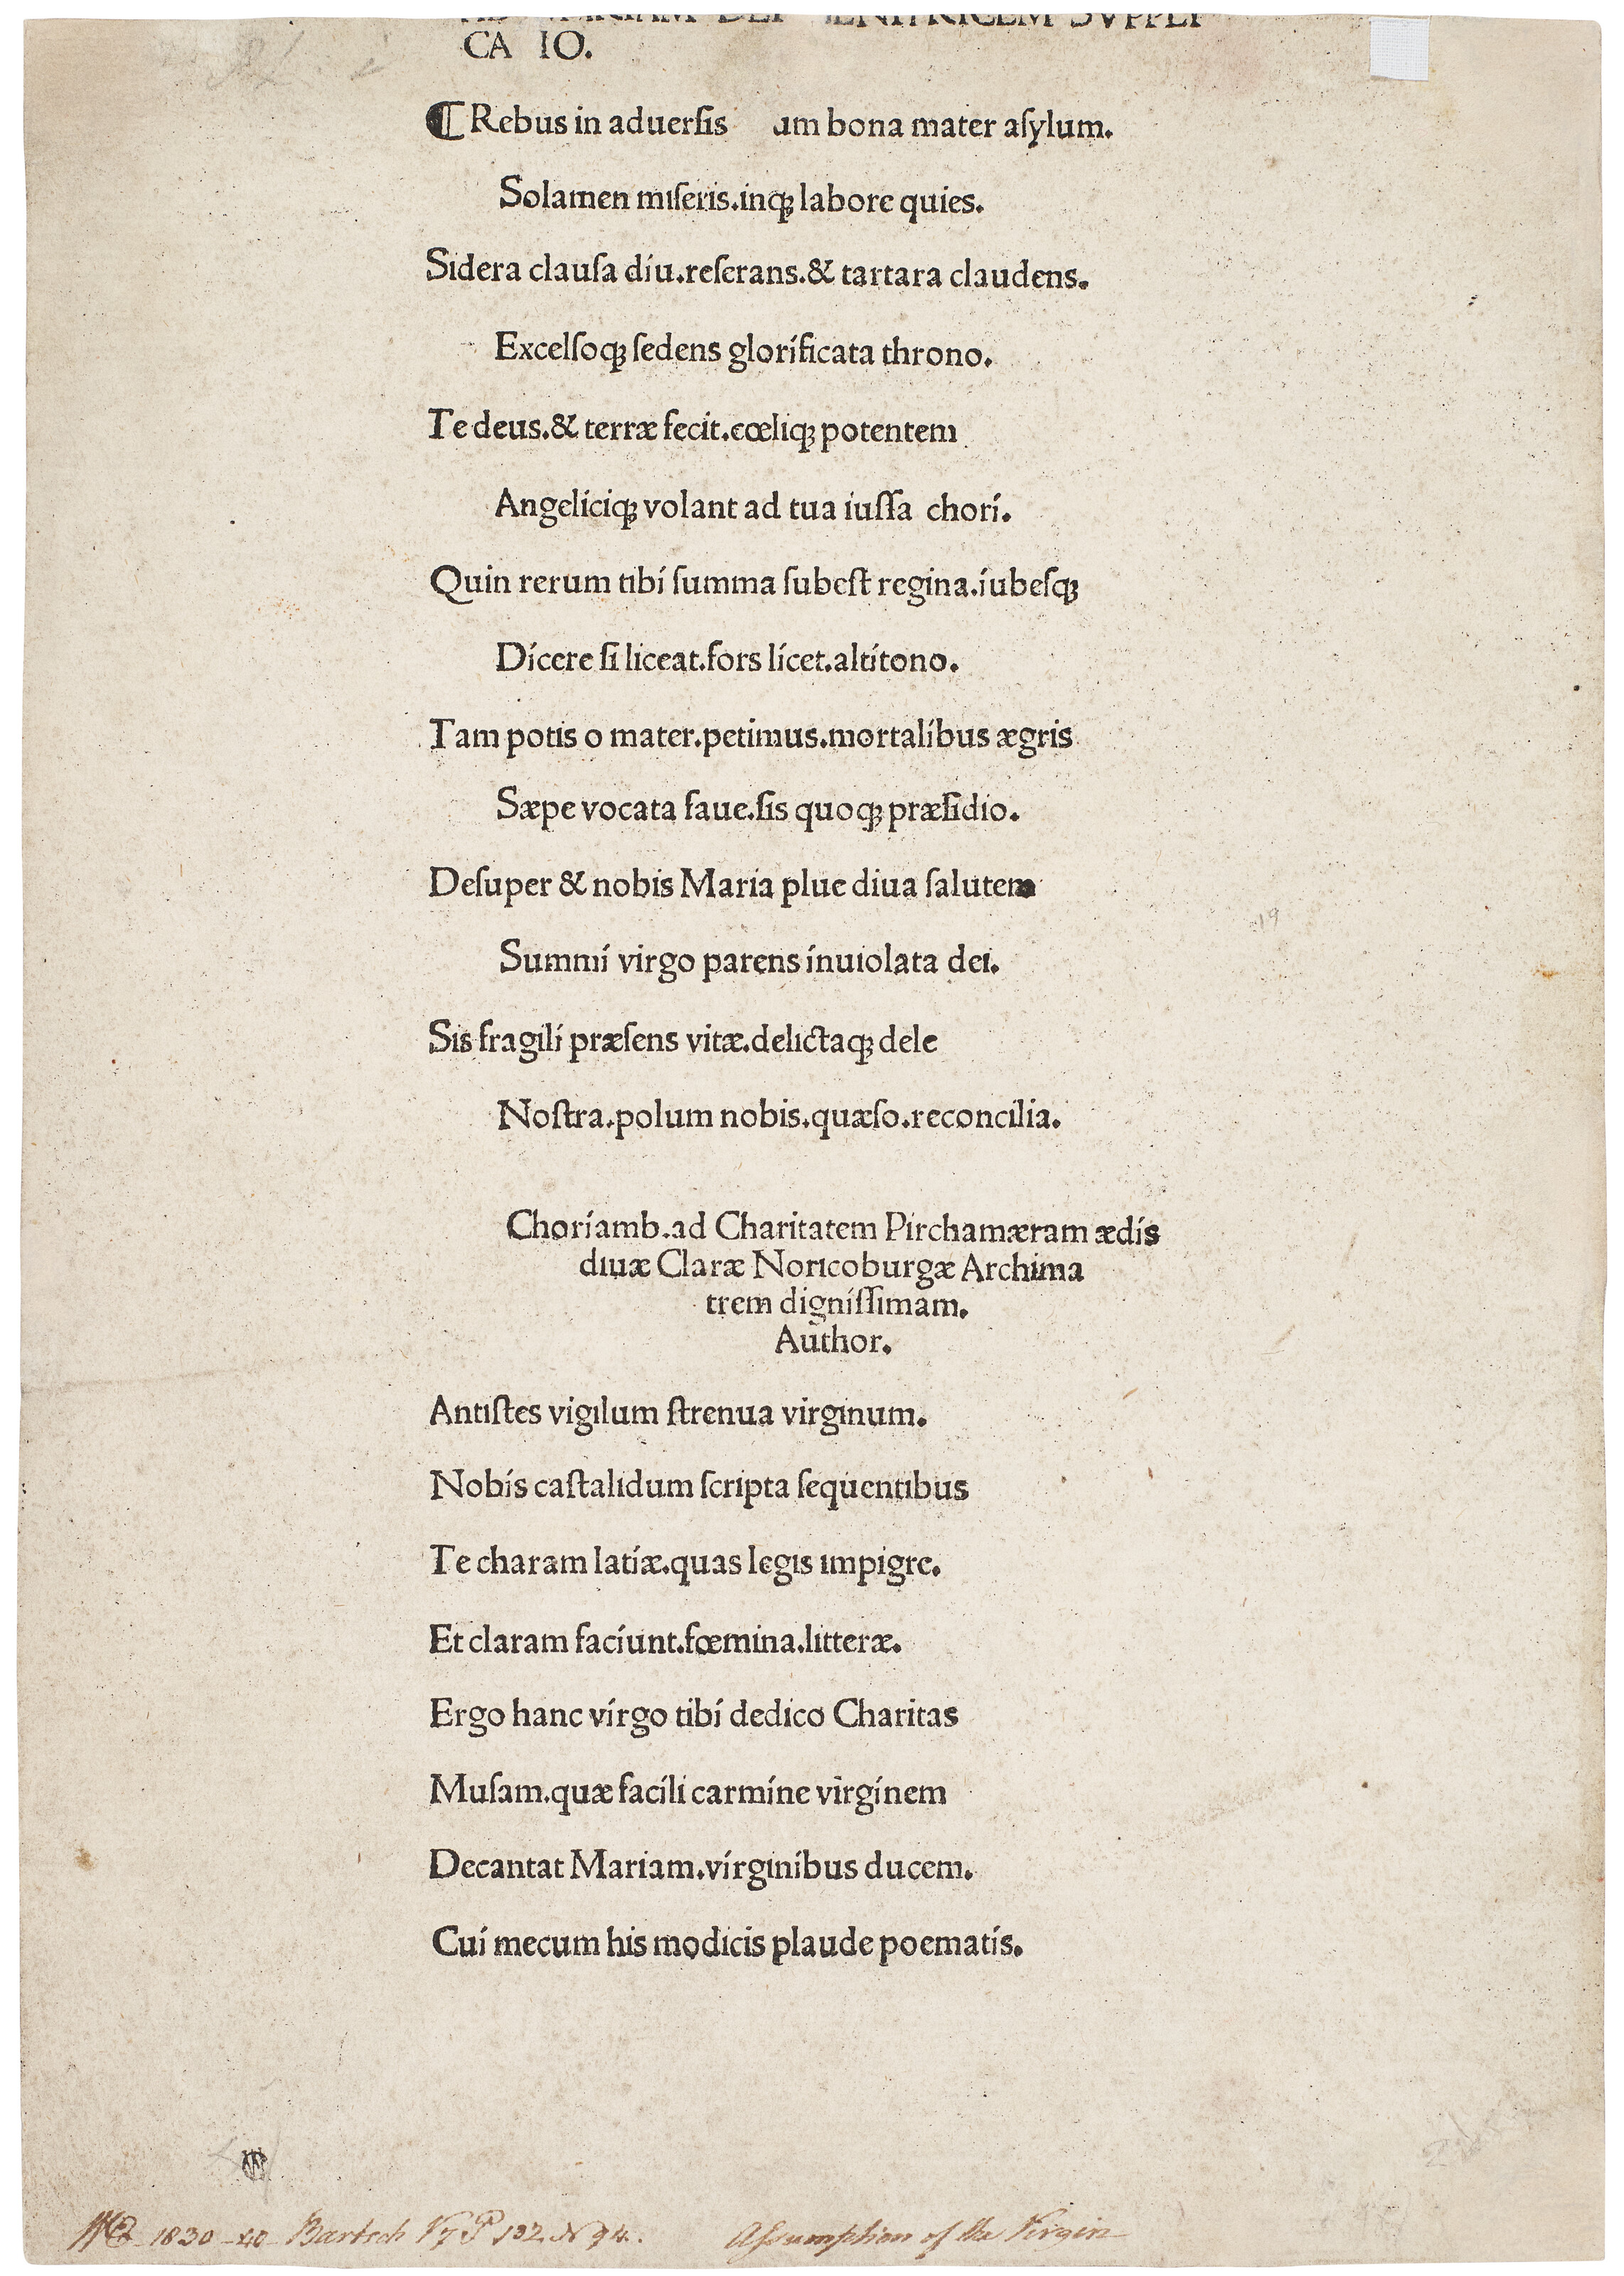 CA IO.
¶ Rebus in aduerſis am bona mater aſylum.
Solamen miſeris.inqꝫ labore quies.
Sidera clauſa diu.reſerans.& tartara claudens.
Excelſoqꝫ ſedens glorificata throno.
Te deus.& terræ fecit.cœliqꝫ potentem
Angeliciqꝫ volant ad tua iuſſa chori.
Quin rerum tibi ſumma ſubeſt regina.iubeſqꝫ
Dicere ſi liceat.fors licet.altitono.
Tam potis o mater.petimus.mortalibus ægris
Sæpe vocata faue.ſis quoqꝫ præſidio.
Deſuper & nobis Maria plue diua ſalutem
Summi virgo parens inuiolata dei.
Sis fragili præſens vitæ.delictaqꝫ dele
Noſtra.polum nobis.quæſo.reconcilia.
Choriamb.ad Charitatem Pirchamæram ædis
diuæ Claræ Noricoburgæ Archima
trem digniſſimam.
Author.
Antiſtes vigilum ſtrenua virginum.
Nobis caſtalidum ſcripta ſequentibus
Te charam latiæ.quas legis impigre.
Et claram faciunt.fœmina.litteræ.
Ergo hanc virgo tibi dedico Charitas
Muſam.quæ facili carmine virginem
Decantat Mariam.virginibus ducem.
Cui mecum his modicis plaude poematis.
19
1830-40 Bartsch V7 P 132 N 94. Aſsumption of the Virgin